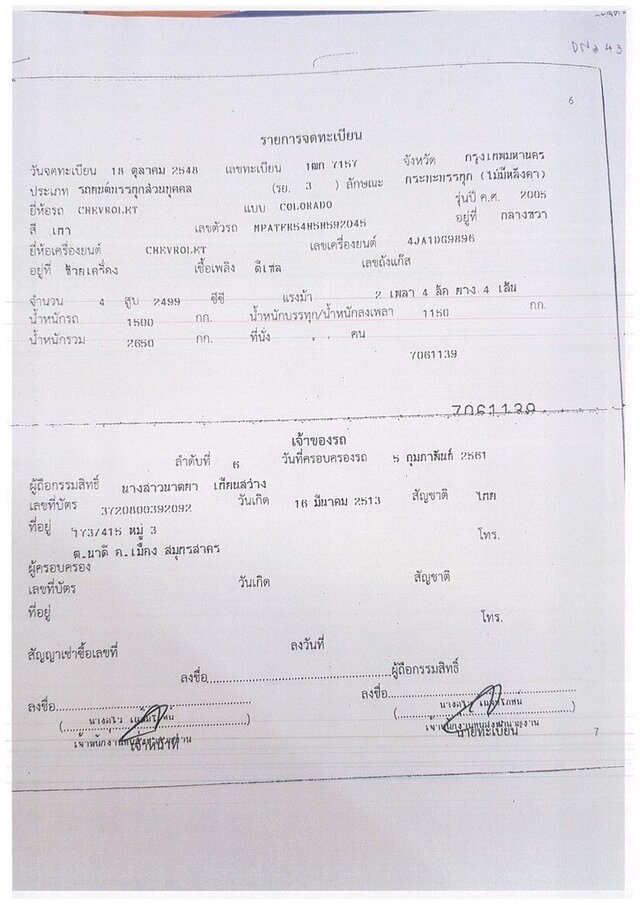 DN# 43
6
รายการจดทะเบียน
วันจดทะเบียน 18 ตุลาคม 2548 เลขทะเบียน 1ฒก 7157 จังหวัด กรุงเทพมหานคร
ประเภท รถยนต์บรรทุกส่วนบุคคล (รย. 3 ) ลักษณะ กระบะบรรทุก (ไม่มีหลังคา)
ยี่ห้อรถ CHEVROLET แบบ COLORADO รุ่นปี ค.ศ. 2005
สี เทา เลขตัวรถ MPATFR54H5H592045 อยู่ที่ กลางขวา
ยี่ห้อเครื่องยนต์ CHEVROLET เลขเครื่องยนต์ 4JA1DG9896
อยู่ที่ ซ้ายเครื่อง เชื้อเพลิง ดีเซล เลขถังแก๊ส
จำนวน 4 สูบ 2499 ซีซี แรงม้า 2 เพลา 4 ล้อ ยาง 4 เส้น
น้ำหนักรถ 1500 กก. น้ำหนักบรรทุก/น้ำหนักลงเพลา 1150 กก.
น้ำหนักรวม 2650 กก. ที่นั่ง คน
7061139
7061139
เจ้าของรถ
ลำดับที่ 6 วันที่ครอบครองรถ 5 กุมภาพันธ์ 2561
ผู้ถือกรรมสิทธิ์ นางสาวนาตยา เทียนสว่าง
เลขที่บัตร 3720800392092 วันเกิด 16 มีนาคม 2513 สัญชาติ ไทย
ที่อยู่ 173/415 หมู่ 3 โทร.
ต.นาดี อ.เมือง สมุทรสาคร
ผู้ครอบครอง
เลขที่บัตร วันเกิด สัญชาติ
ที่อยู่ โทร.
สัญญาเช่าซื้อเลขที่ ลงวันที่
ลงชื่อ ผู้ถือกรรมสิทธิ์
ลงชื่อ ลงชื่อ
เจ้าหน้าที่ นายทะเบียน 7